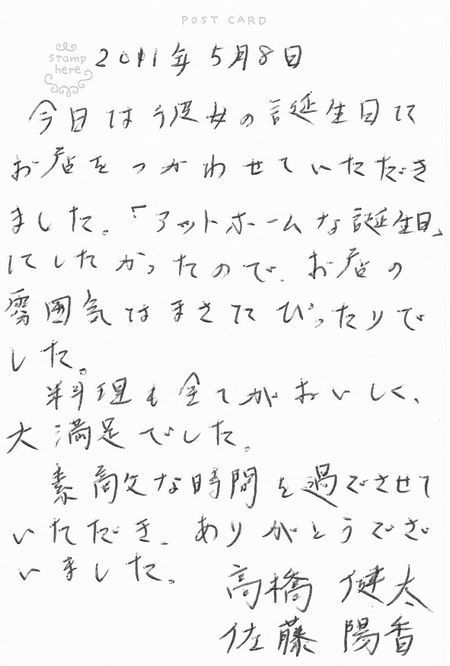 POST CARD
stamp here
2011年5月8日
今日は彼女の誕生日に
お店をつかわせていただき
ました。「アットホームな誕生日」
にしたかったので、お店の
雰囲気はまさにぴったりで
した。
料理も全てがおいしく、
大満足でした。
素敵な時間を過ごさせて
いただき、ありがとうござ
いました。
高橋 健太
佐藤 陽香